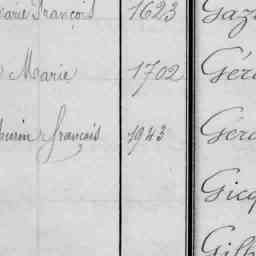 Marie François 1623 Gaz
Marie 1702 Géra
François 1943 Gera
Gicq
Gilh